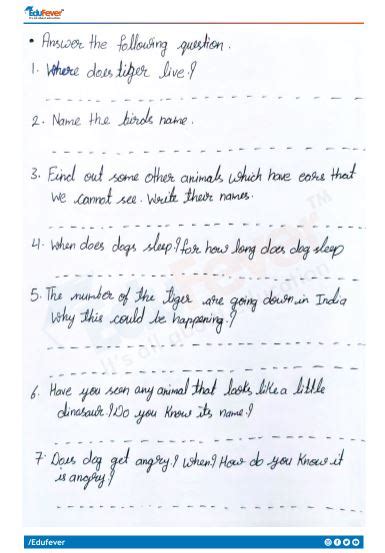 EduFever
It's all about education
• Answer the following question.
1. Where does tiger live?
2. Name the birds name.
3. Find out some other animals which have ears that
we cannot see. Write their names.
4. When does dogs sleep? for how long does dog sleep
5. The number of the tiger are going down in India
Why this could be happening?
6. Have you seen any animal that looks like a little
dinasaur? Do you know its name?
7. Does dog get angry? When? How do you know it
is angry?
EduFever™
It's all about education
/Edufever